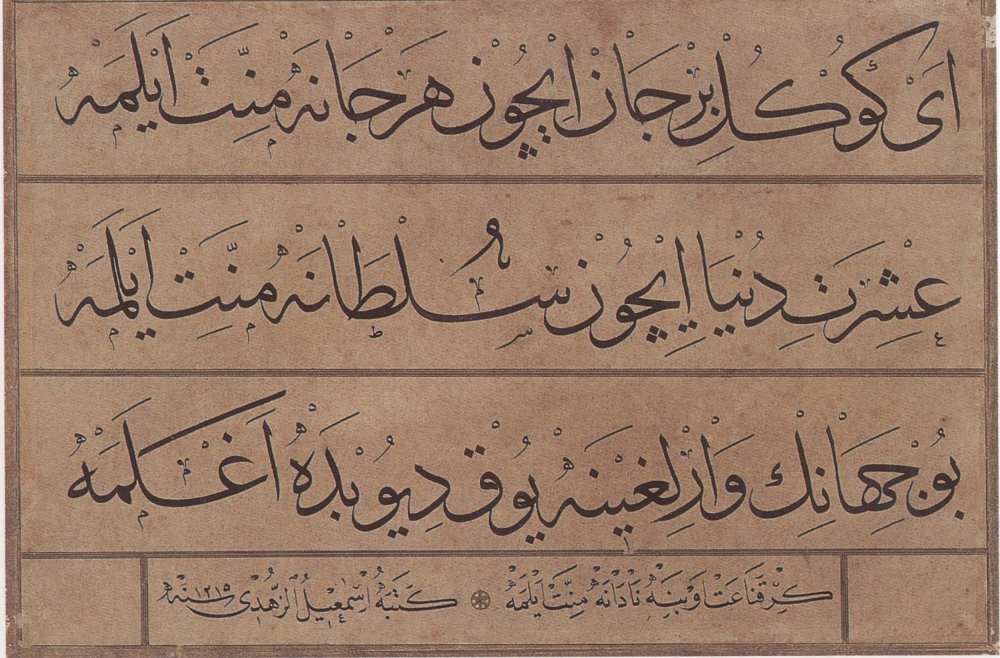 اَیْ کُوکُلْ بِرْ جَانْ اِیچُونْ هَرْ جَانَه مِنَّتْ اَیْلَمَه
عِشْرَتِ دُنْیَا اِیچُونْ سُلْطَانَه مِنَّتْ اَیْلَمَه
بُو جِهَانِكْ وَارْلِغِینَه یُوقْ دِیُو بَدَهْ اَغْلَمَه
کِرْ قَنَاعَتْ اَوِینَهْ نَادَانَهْ مِنَّتْ اَیْلَمَهْ ❋ کَتَبَهُ اِسْمٰعِیلُ الزُّهْدِی سَنَه ١٢١٥